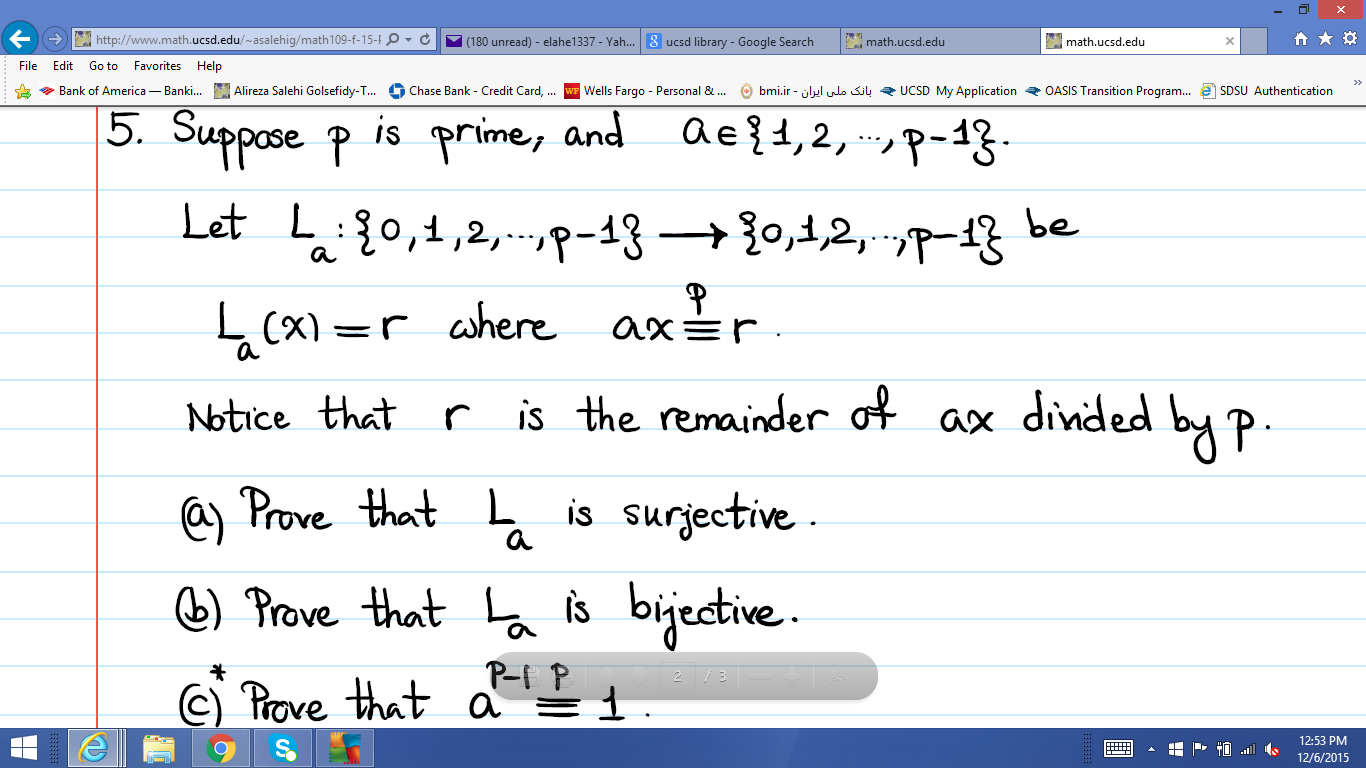 http://www.math.ucsd.edu/~asalehig/math109-f-15-F
(180 unread) - elahe1337 - Yah...
ucsd library - Google Search
math.ucsd.edu
math.ucsd.edu
File Edit Go to Favorites Help
Bank of America — Banki...
Alireza Salehi Golsefidy-T...
Chase Bank - Credit Card, ...
Wells Fargo - Personal & ...
bmi.ir - بانک ملی ایران
UCSD My Application
OASIS Transition Program...
SDSU Authentication
5. Suppose p is prime, and a∈{1,2,…,p-1}.
Let Lₐ:{0,1,2,…,p-1} ⟶ {0,1,2,…,p-1} be
Lₐ(x)=r where ax ≡ᵖ r.
Notice that r is the remainder of ax divided by p.
(a) Prove that Lₐ is surjective.
(b) Prove that Lₐ is bijective.
(c)* Prove that aᵖ⁻¹ ≡ᵖ 1.
2 / 3
12:53 PM
12/6/2015